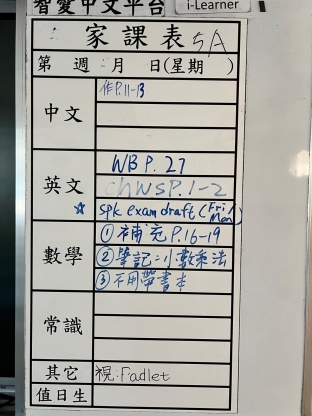 智愛中文平台
i-Learner
家課表 5A
第 週 月 日(星期 )
中文
作P.11-13
英文
WB P. 27
Ch WS P. 1-2
☆ spk exam draft (Fri/Mon)
數學
① 補充 P.16-19
② 筆記:小數乘法
③ 不用帶書本
常識
其它
視:Padlet
值日生